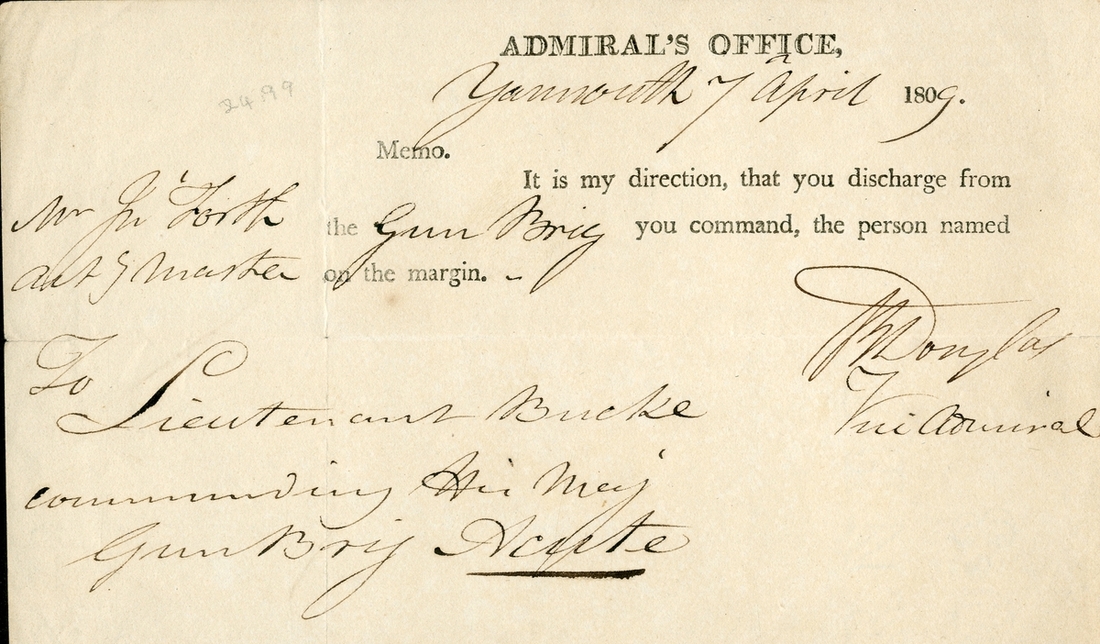 ADMIRAL'S OFFICE,
24.99
Yarmouth 7 April 1809.
Memo.
It is my direction, that you discharge from
Mr Jn Forth
the Gun Brig you command, the person named
Master
on the margin.
Douglas
Vice Admiral
To
Lieutenant Bucke
commanding His Maj
Gun Brig Acute